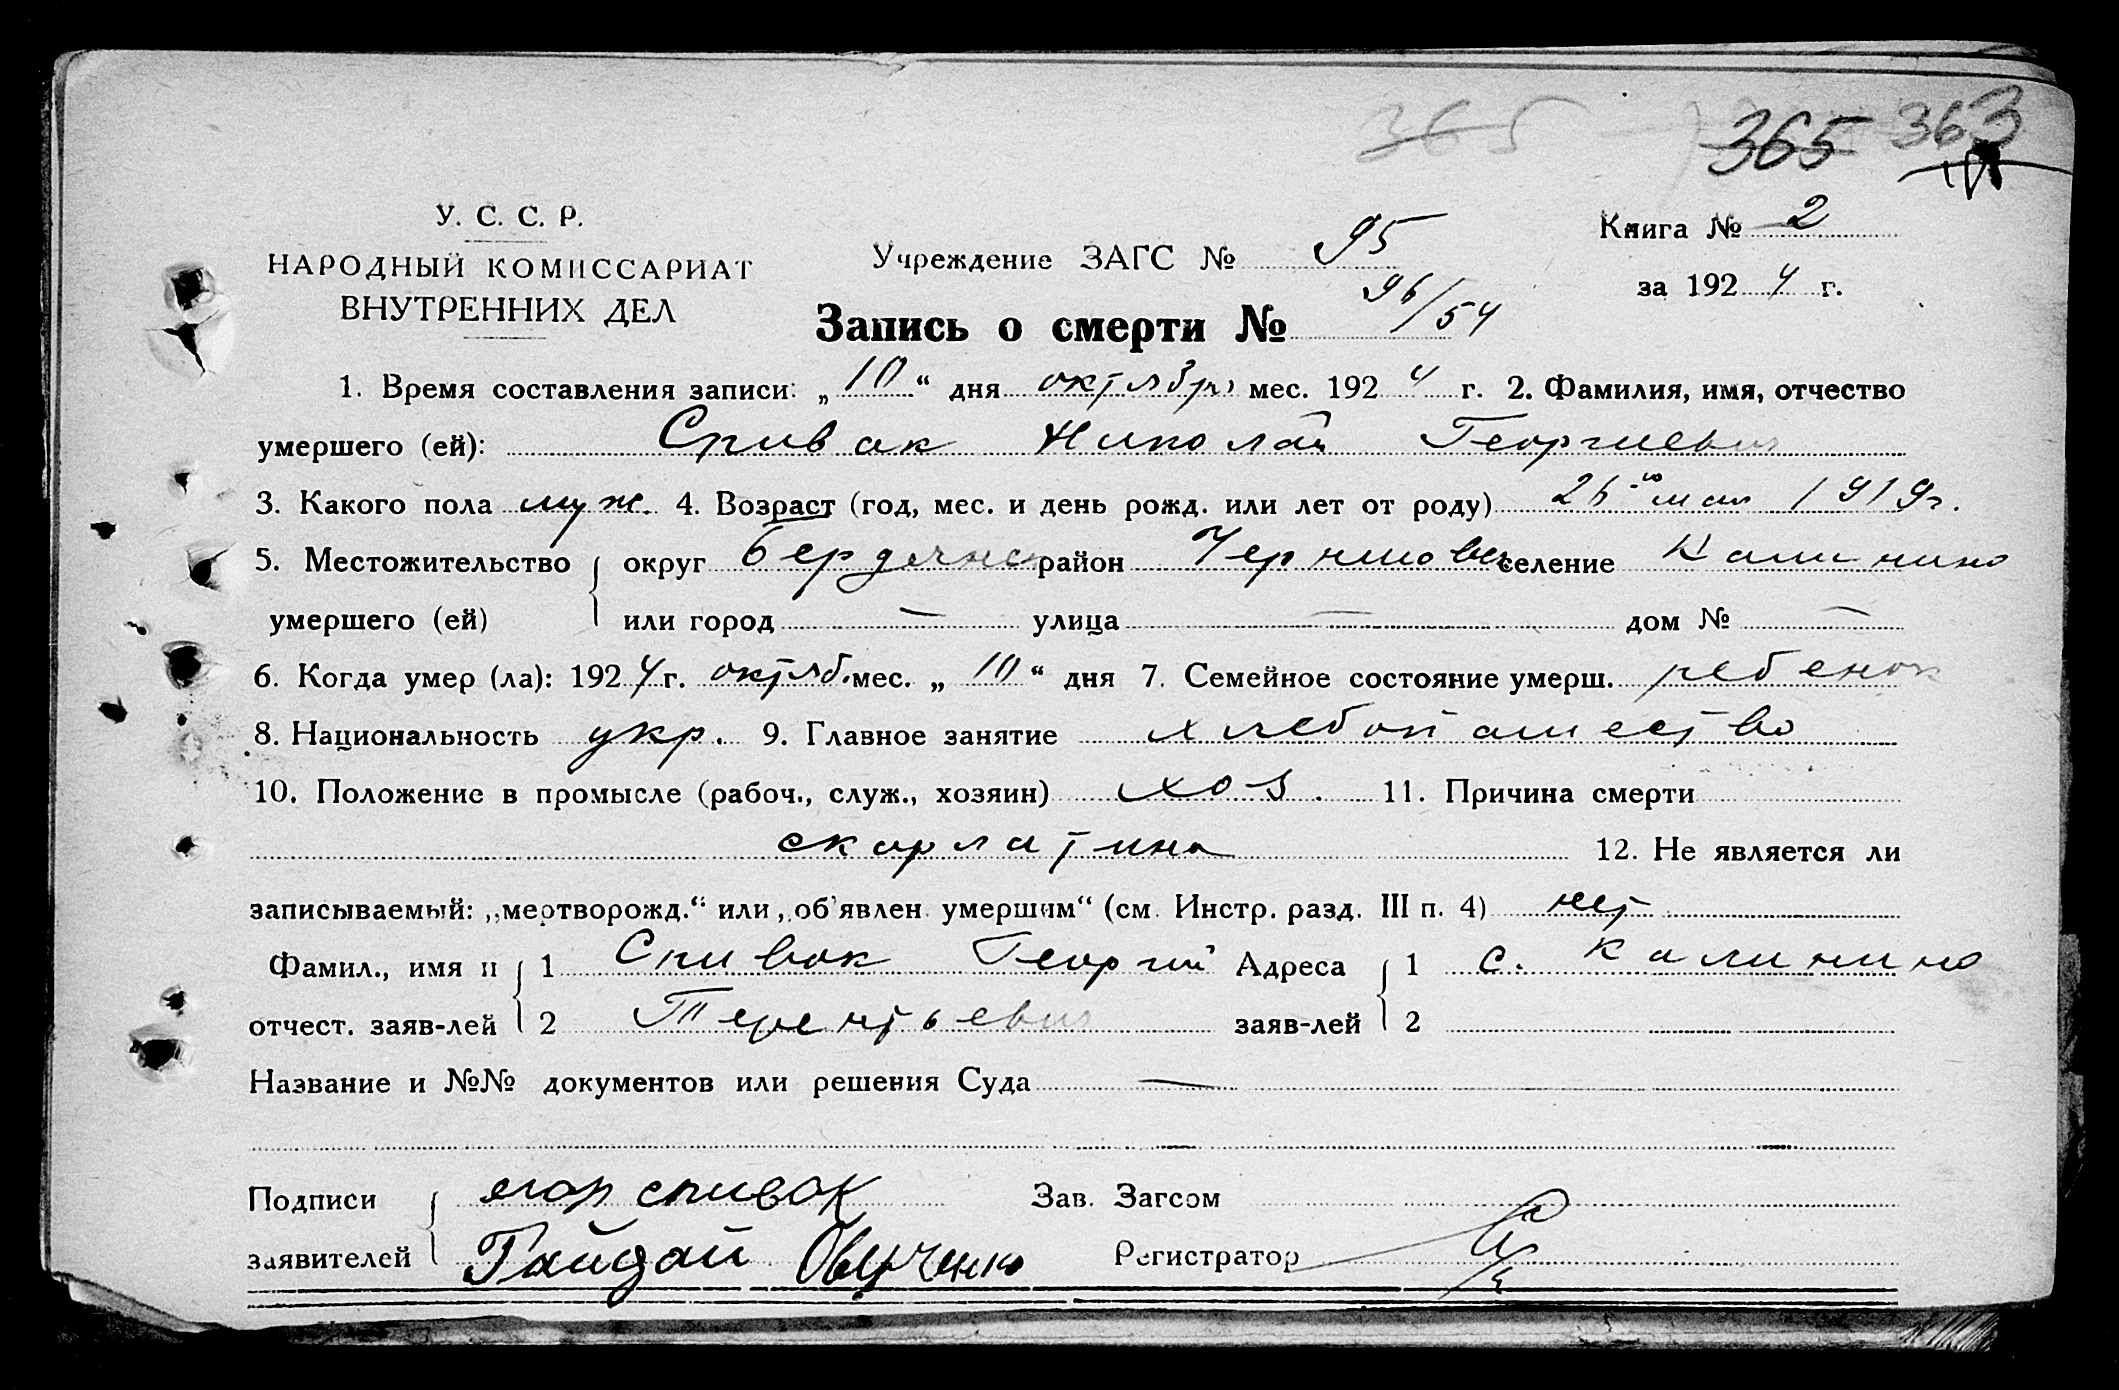 365 365 363
У. С. С. Р.
НАРОДНЫЙ КОМИССАРИАТ
ВНУТРЕННИХ ДЕЛ
Учреждение ЗАГС № 95
Книга № 2
за 1924 г.
Запись о смерти № 96/54
1. Время составления записи: „10“ дня октября мес. 1924 г. 2. Фамилия, имя, отчество
умершего (ей): Спивак Николай Георгиевич
3. Какого пола муж. 4. Возраст (год, мес. и день рожд. или лет от роду) 26-го мая 1919 г.
5. Местожительство округ Бердянск район Черниговс селение Калинино
умершего (ей) или город — улица — дом № —
6. Когда умер (ла): 1924 г. октяб. мес. „10“ дня 7. Семейное состояние умерш. ребенок
8. Национальность укр. 9. Главное занятие хлебопашество
10. Положение в промысле (рабоч., служ., хозяин) хоз. 11. Причина смерти
скарлатина 12. Не является ли
записываемый: „мертворожд.“ или „об'явлен умершим“ (см. Инстр. разд. III п. 4) нет
Фамил., имя и 1 Спивак Георгий Адреса 1 с. Калинино
отчест. заяв-лей 2 Терентьевич заяв-лей 2
Название и №№ документов или решения Суда —
Подписи егор спивак Зав. Загсом
заявителей Гайдай Овчренко Регистратор